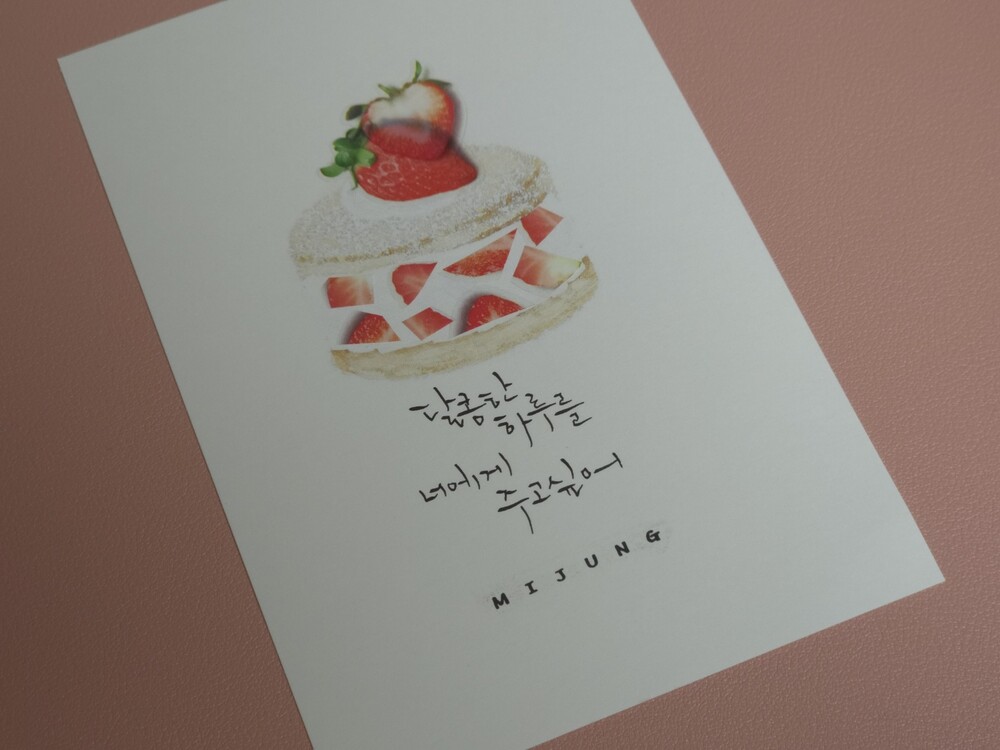 달콤한
하루를
너에게
주고싶어
MIJUNG